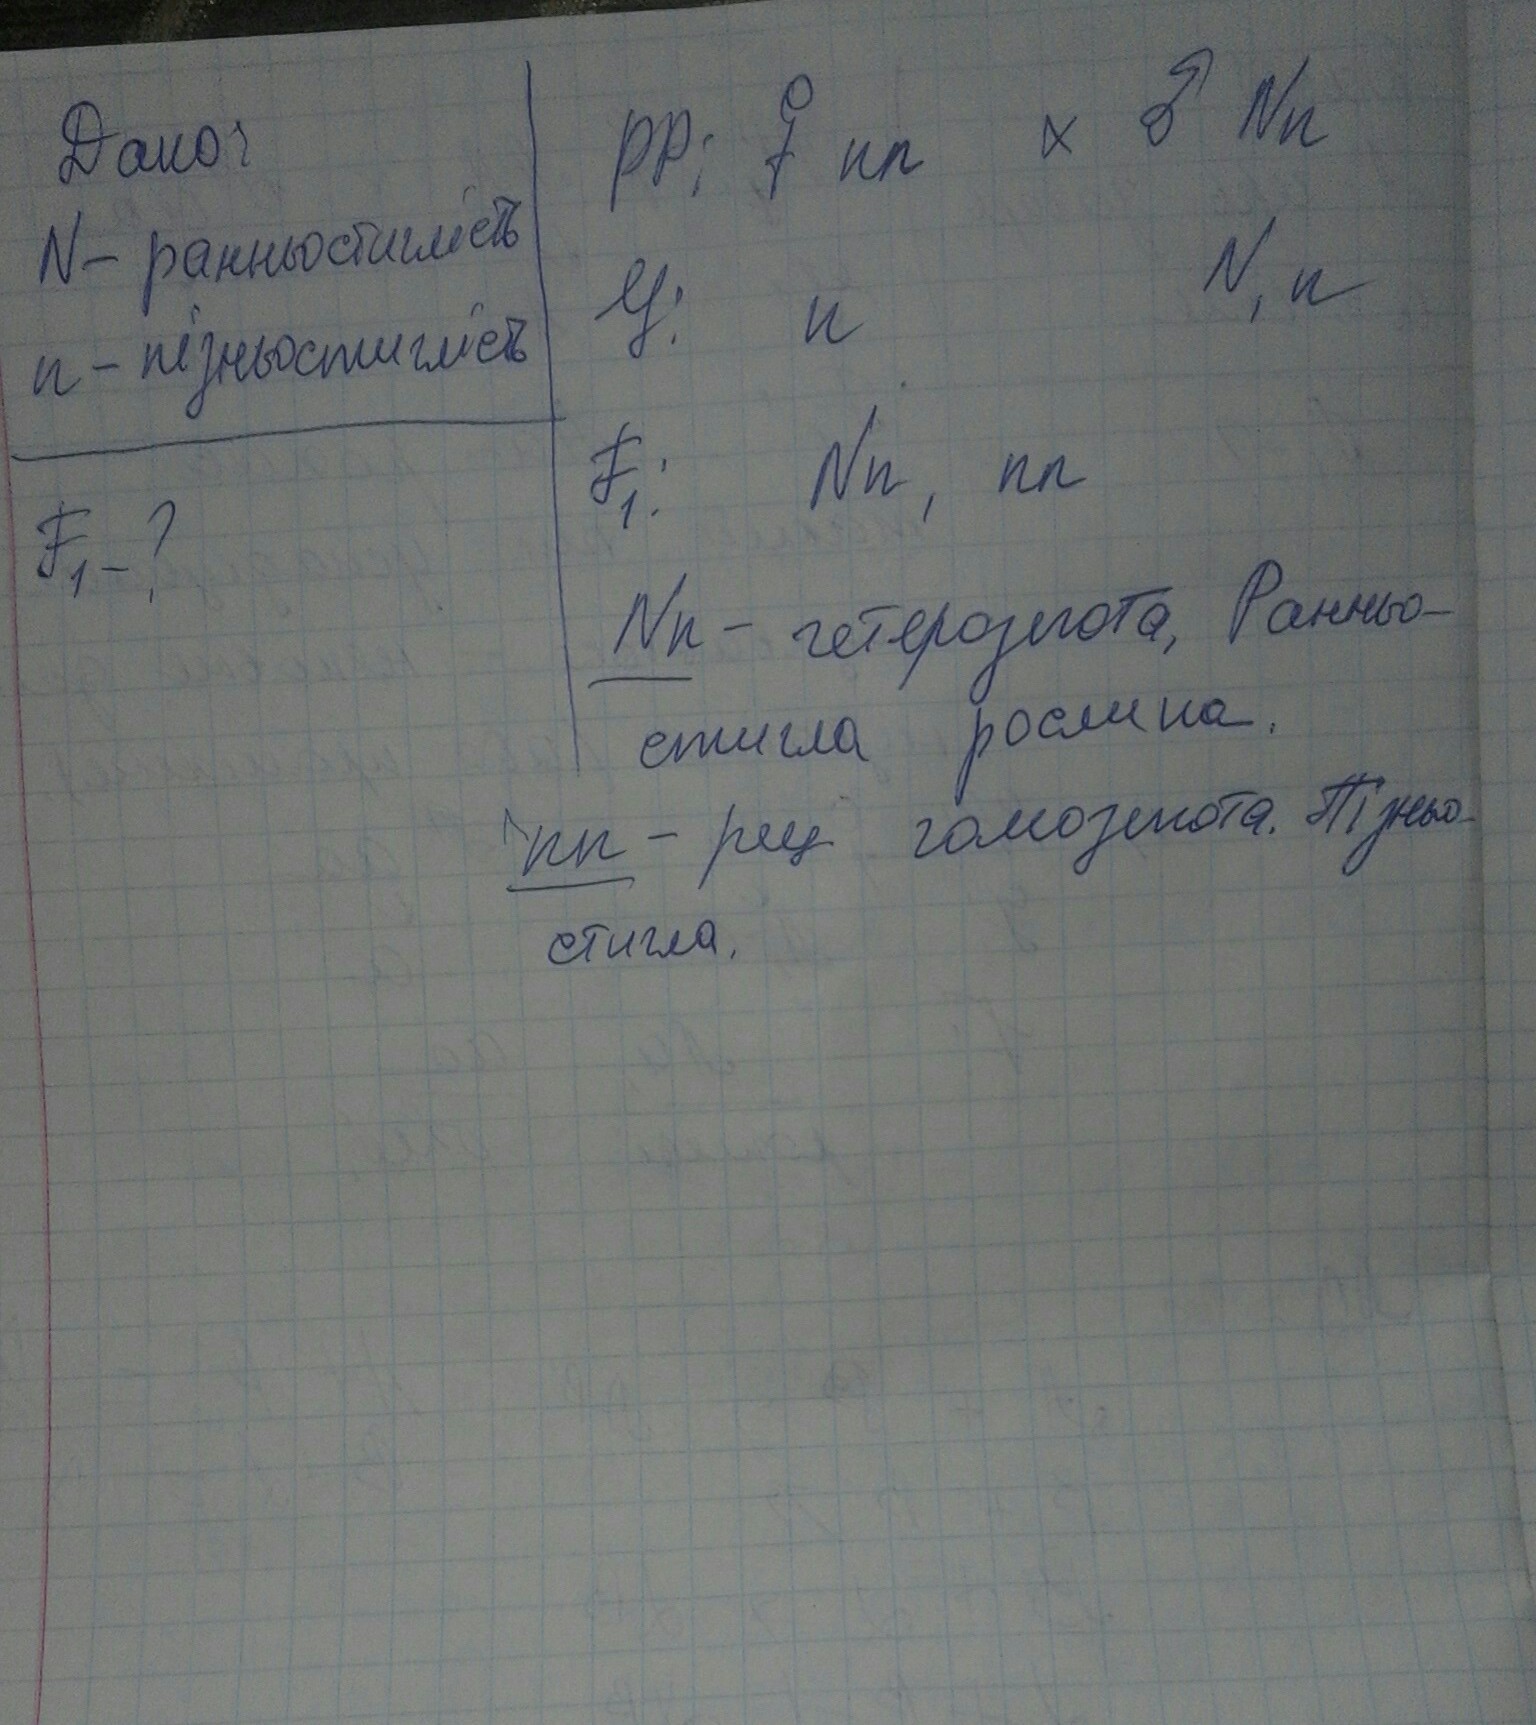 Дано:
N - ранньостиглість
n - пізньостиглість
F1 - ?
PP: ♀ nn x ♂ Nn
G: n N, n
F1: Nn, nn
Nn - гетерозигота, Ранньо-
стигла рослина.
nn - рец гомозигота. Пізньо-
стигла.